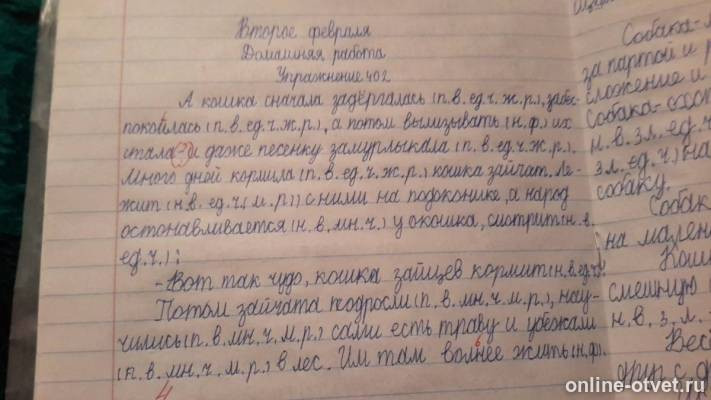 Второе февраля
Домашняя работа
Упражнение 402
А кошка сначала задёргалась (п.в. ед.ч. ж.р.), забес-
покоилась (п.в. ед.ч. ж.р.), а потом вылизывать (н.ф.) их
стала и даже песенку замурлыкала (п.в. ед.ч. ж.р.).
Много дней кормила (п.в. ед.ч. ж.р.) кошка зайчат. Ле-
жит (н.в. ед.ч. м.р.) с ними на подоконике, а народ
останавливается (н.в. мн.ч.) у окошка, смотрит (н.в.
ед.ч.):
- Вот так чудо, кошка зайцев кормит (н.в. ед.ч.)!
Потом зайчата подросли (п.в. мн.ч. м.р.), нау-
чились (п.в. мн.ч. м.р.) сами есть траву и убежали
(п.в. мн.ч. м.р.) в лес. Им там волнее жить (н.ф.).
4
Собака-
за партой и
сложение и
Собака-охот
н.в. 3 л. ед.ч.
3 л. ед.ч.) на
собаку.
Собак
на мален
Кош
смешную
н.в. 3 л.
Вес
друг с д
online-otvet.ru